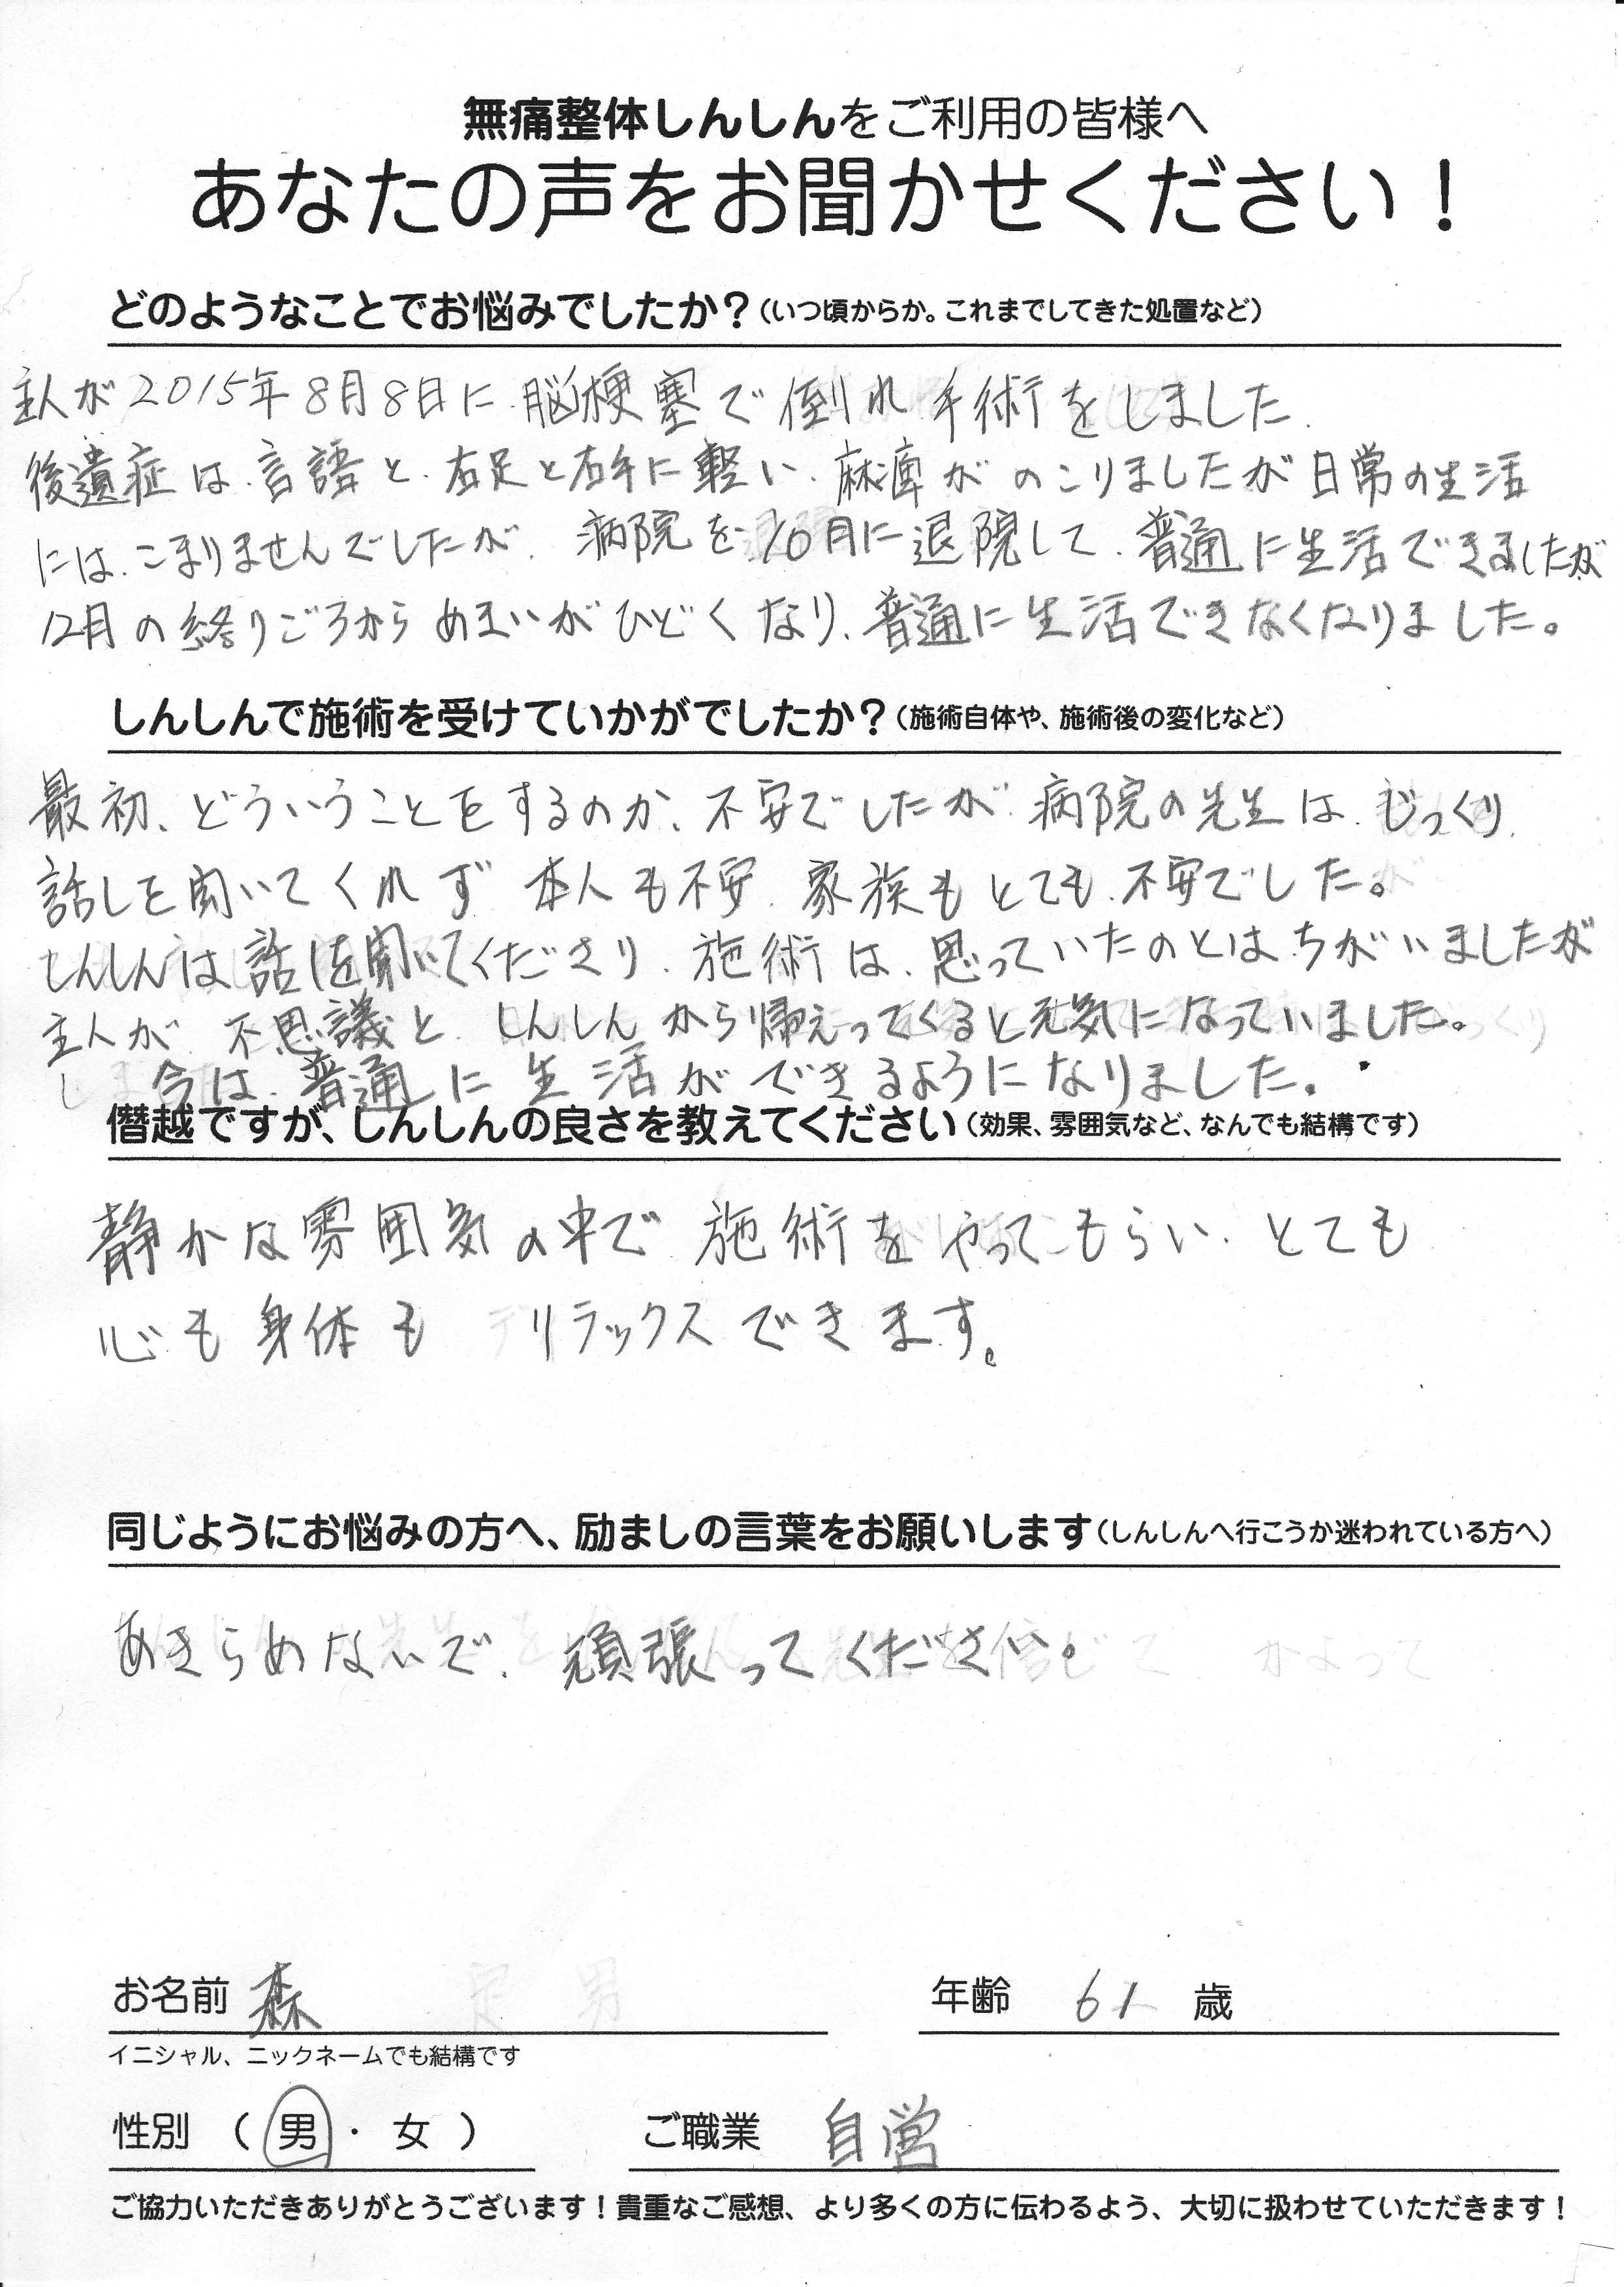 無痛整体しんしんをご利用の皆様へ
あなたの声をお聞かせください！
どのようなことでお悩みでしたか？（いつ頃からか。これまでしてきた処置など）
主人が2015年8月8日に、脳梗塞で倒れ手術をしました。
後遺症は、言語と、右足と右手に軽い、麻痺がのこりましたが日常の生活
には、こまりませんでしたが、病院を10月に退院して、普通に生活できましたが
12月の終りごろからめまいがひどくなり、普通に生活できなくなりました。
しんしんで施術を受けていかがでしたか？（施術自体や、施術後の変化など）
最初、どういうことをするのか、不安でしたが、病院の先生は、じっくり、
話しを聞いてくれず、本人も不安、家族もとても、不安でした。
しんしんは話しを聞いてくださり、施術は、思っていたのとは、ちがいましたが
主人が、不思議と、しんしんから帰えってくると元気になっていました。
今は、普通に生活ができるようになりました。
僭越ですが、しんしんの良さを教えてください（効果、雰囲気など、なんでも結構です）
静かな雰囲気の中で、施術をやってもらい、とても
心も身体もリラックスできます。
同じようにお悩みの方へ、励ましの言葉をお願いします（しんしんへ行こうか迷われている方へ）
あきらめないで、頑張ってください。
お名前 森 年齢 61 歳
イニシャル、ニックネームでも結構です
性別 （男・女） ご職業 自営
ご協力いただきありがとうございます！貴重なご感想、より多くの方に伝わるよう、大切に扱わせていただきます！